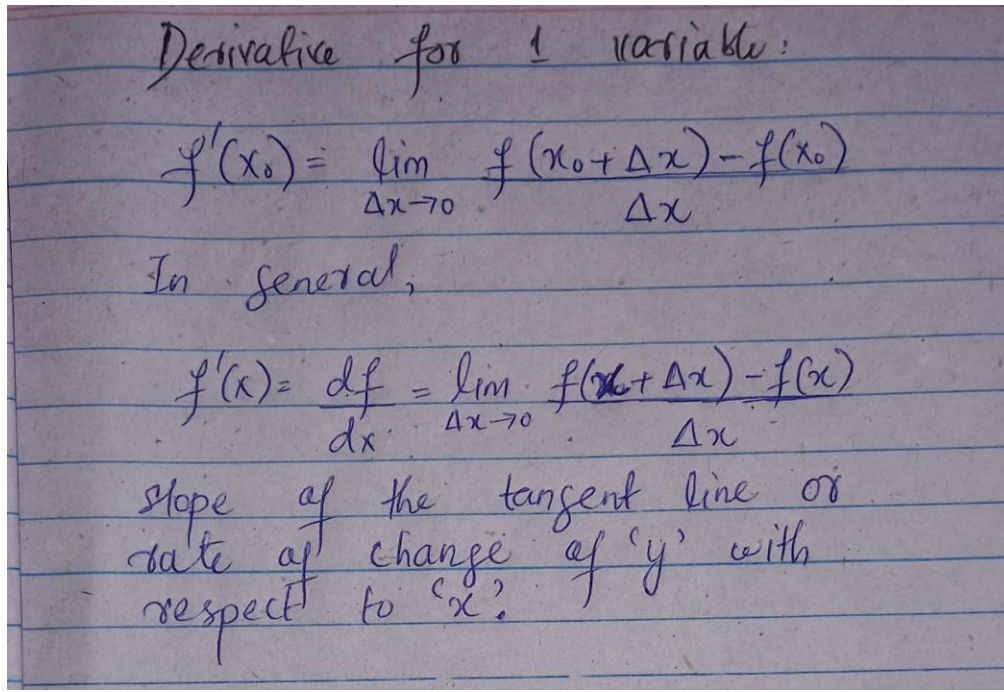 Derivative for 1 variable:
f'(x₀) = lim Δx→0 f(x₀+Δx)-f(x₀) / Δx
In general,
f'(x) = df/dx = lim Δx→0 f(x+Δx)-f(x) / Δx
slope of the tangent line or
rate of change of 'y' with
respect to 'x'.